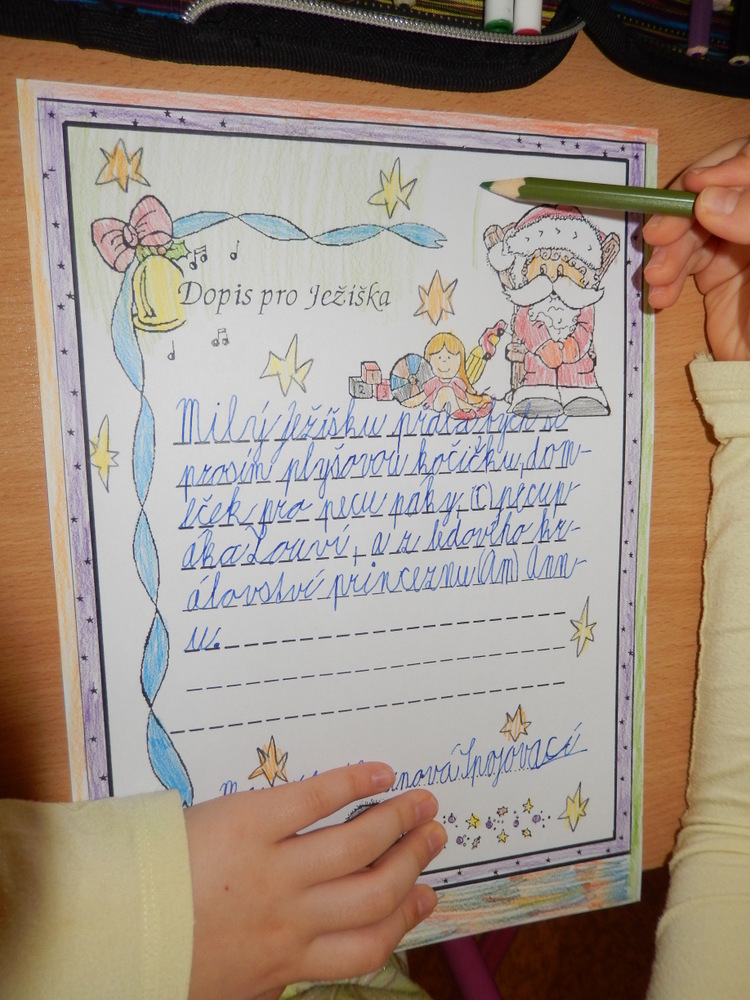 Dopis pro Ježíška
Milý ježíšku přála bych si
prosím plyšovou kočičku, dom-
eček pro pecu páky, (C) pecup-
áka Louví, a z ledového kr-
álovství princeznu (Am) Ann-
u.
anová Spojovací